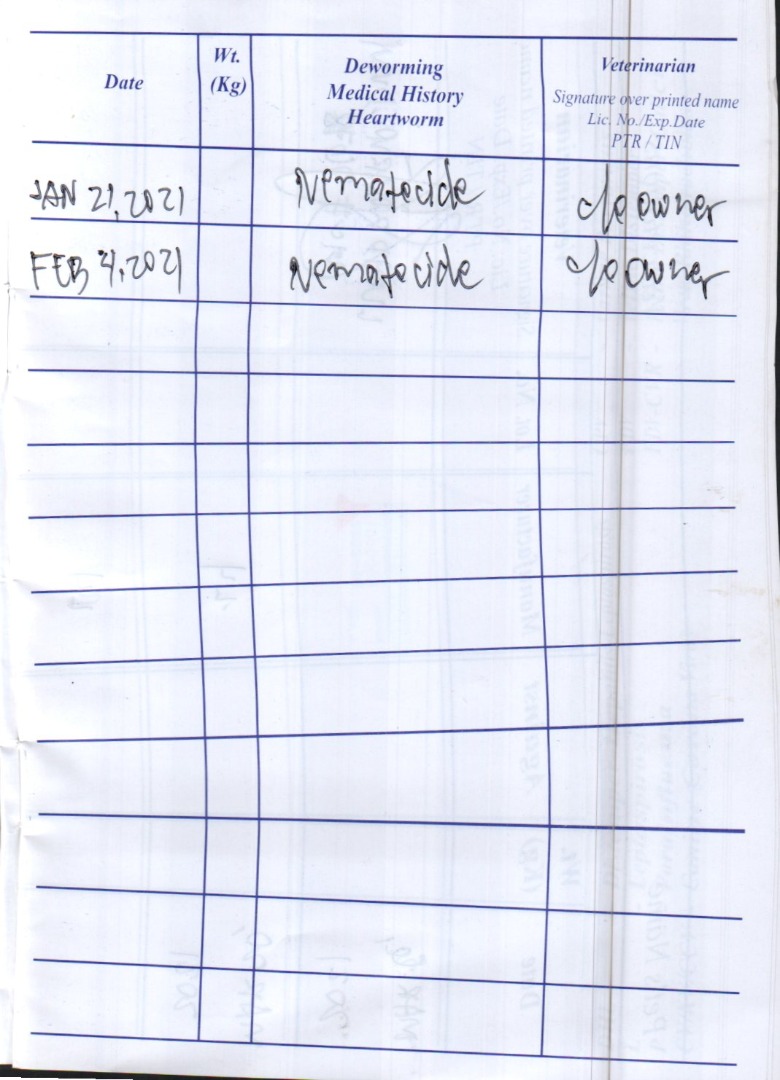 Date
Wt.
(Kg)
Deworming
Medical History
Heartworm
Veterinarian
Signature over printed name
Lic. No./Exp.Date
PTR / TIN
JAN 21, 2021 Nematocide c/o owner
FEB 4, 2021 Nematocide c/o owner